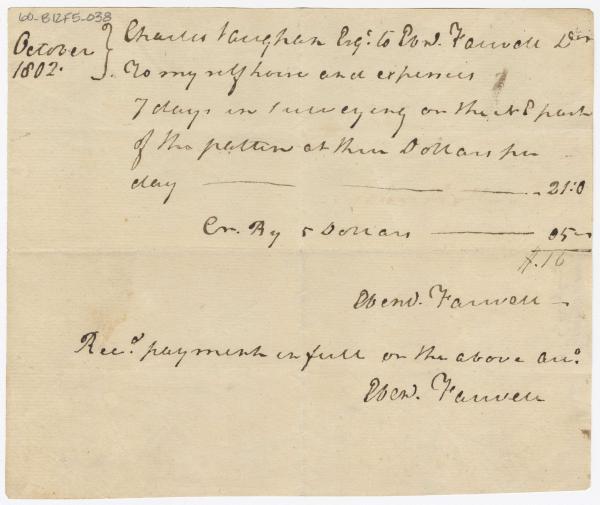 60-B12F5-038
October
1802.
Charles Vaughan Esqr. to Ebnr. Farwell Dr
To myself horse and expenses
7 days in surveying on the NE part
of the patten at three Dollars per
day 21:0
Cr. By 5 Dollars 05
$.16
Ebenr. Farwell
Recd. payment in full on the above acc.
Ebenr. Farwell